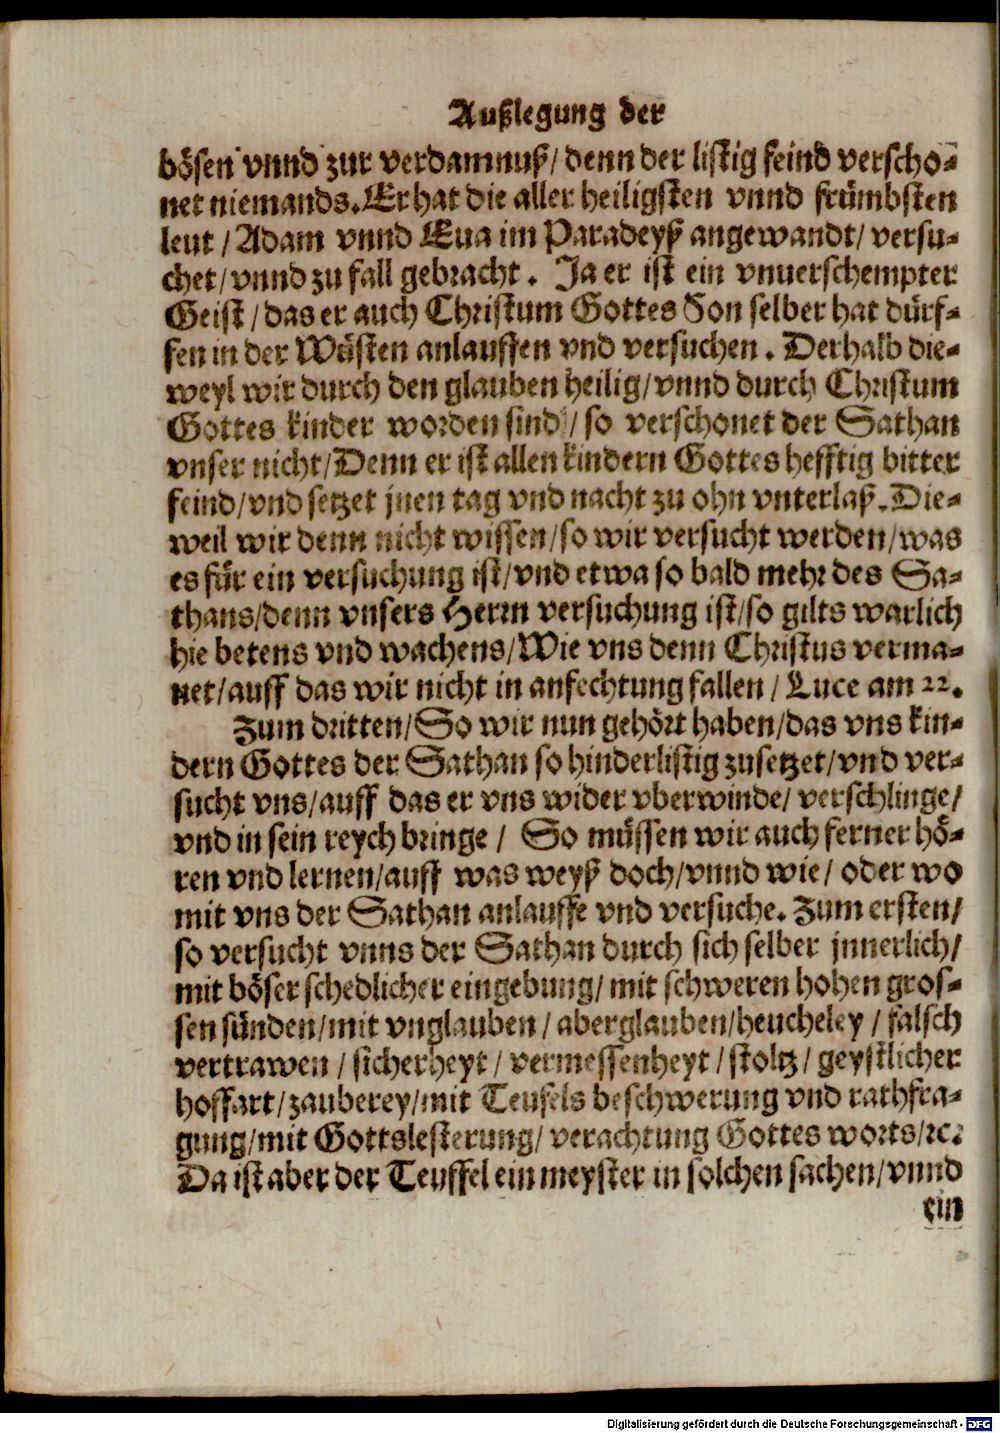 Außlegung der
bösen vnnd zur verdamnuß/ denn der listig feind verscho-
net niemands. Er hat die aller heiligsten vnnd frümbsten
leut / Adam vnnd Eua im Paradeyß angewandt/ versu-
chet/ vnnd zu fall gebracht. Ja er ist ein vnuerschempter
Geist / das er auch Christum Gottes Son selber hat dürf-
fen in der Wüsten anlauffen vnd versuchen. Derhalb die-
weyl wir durch den glauben heilig/ vnnd durch Christum
Gottes kinder worden sind / so verschonet der Sathan
vnser nicht/ Denn er ist allen kindern Gottes hefftig bitter
feind/ vnd setzet jnen tag vnd nacht zu ohn vnterlaß. Die-
weil wir denn nicht wissen/ so wir versucht werden/ was
es für ein versuchung ist/ vnd etwa so bald mehr des Sa-
thans/ denn vnsers Herrn versuchung ist/ so gilts warlich
hie betens vnd wachens/ Wie vns denn Christus verma-
net/ auff das wir nicht in anfechtung fallen / Luce am 22.
Zum dritten/ So wir nun gehört haben/ das vns kin-
dern Gottes der Sathan so hinderlistig zusetzet/ vnd ver-
sucht vns/ auff das er vns wider vberwinde/ verschlinge/
vnd in sein reych bringe / So müssen wir auch ferner hö-
ren vnd lernen/ auff was weyß doch/ vnnd wie/ oder wo
mit vns der Sathan anlauffe vnd versuche. Zum ersten/
so versucht vnns der Sathan durch sich selber jnnerlich/
mit böser schedlicher eingebung/ mit schweren hohen gros-
sen sünden/ mit vnglauben / aberglauben/ heucheley / falsch
vertrawen / sicherheyt / vermessenheyt / stoltz / geystlicher
hoffart/ zauberey/ mit Teufels beschwerung vnd rathfra-
gung/ mit Gottslesterung/ verachtung Gottes worts/ ꝛc.
Da ist aber der Teuffel ein meyster in solchen sachen/ vnnd
ein
Digitalisierung gefördert durch die Deutsche Forschungsgemeinschaft - DFG